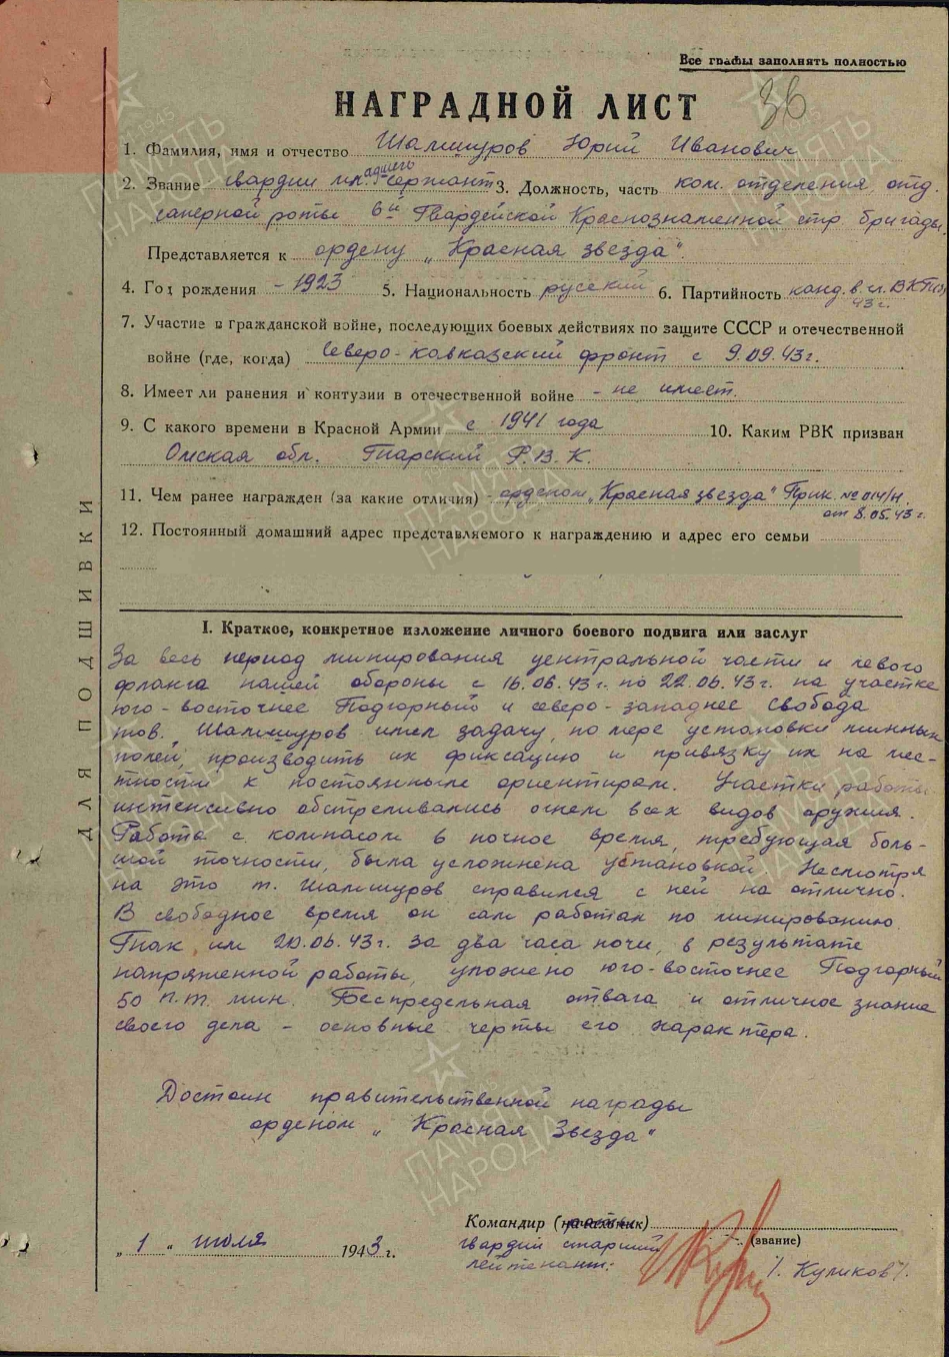 Все графы заполнять полностью
36
НАГРАДНОЙ ЛИСТ
1. Фамилия, имя и отчество Шалшуров Юрий Иванович
2. Звание гвардии мл. сержант 3. Должность, часть ком. отделения отд.
саперной роты 6й Гвардейской Краснознаменной стр. бригады.
Представляется к ордену „Красная звезда".
4. Год рождения - 1923 5. Национальность русский 6. Партийность канд. в чл. ВКП(б)
43 г.
7. Участие в гражданской войне, последующих боевых действиях по защите СССР и отечественной
войне (где, когда) Северо-Кавказский фронт с 9.09.43 г.
8. Имеет ли ранения и контузии в отечественной войне - не имеет.
9. С какого времени в Красной Армии с 1941 года 10. Каким РВК призван
Омская обл. Тарский Р.В.К.
11. Чем ранее награжден (за какие отличия) - орденом „Красная звезда" Прик. № 014/н.
от 8.05.43 г.
12. Постоянный домашний адрес представляемого к награждению и адрес его семьи
ДЛЯ ПОДШИВКИ
I. Краткое, конкретное изложение личного боевого подвига или заслуг
За весь период минирования центральной части и левого
фланга нашей обороны с 16.06.43 г. по 22.06.43 г. на участке
юго-восточнее Подгорный и северо-западнее Свобода
тов. Шалшуров имел задачу, по мере установки минных
полей, производить их фиксацию и привязку их на мес-
тности к постоянным ориентирам. Участки работы
интенсивно обстреливались огнем всех видов оружия.
Работа с компасом в ночное время, требующая боль-
шой точности, была усложнена установкой. Несмотря
на это т. Шалшуров справился с ней на отлично.
В свободное время он сам работал по минированию.
Так им 20.06.43 г. за два часа ночи, в результате
напряженной работы, уложено юго-восточнее Подгорный
50 п.т. мин. Беспредельная отвага и отличное знание
своего дела - основные черты его характера.
Достоин правительственной награды
орденом „Красная Звезда"
Командир (начальник)
„1" июля 1943 г.
гвардии старший (звание)
лейтенант: /. Куликов /.
ПАМЯТЬ НАРОДА